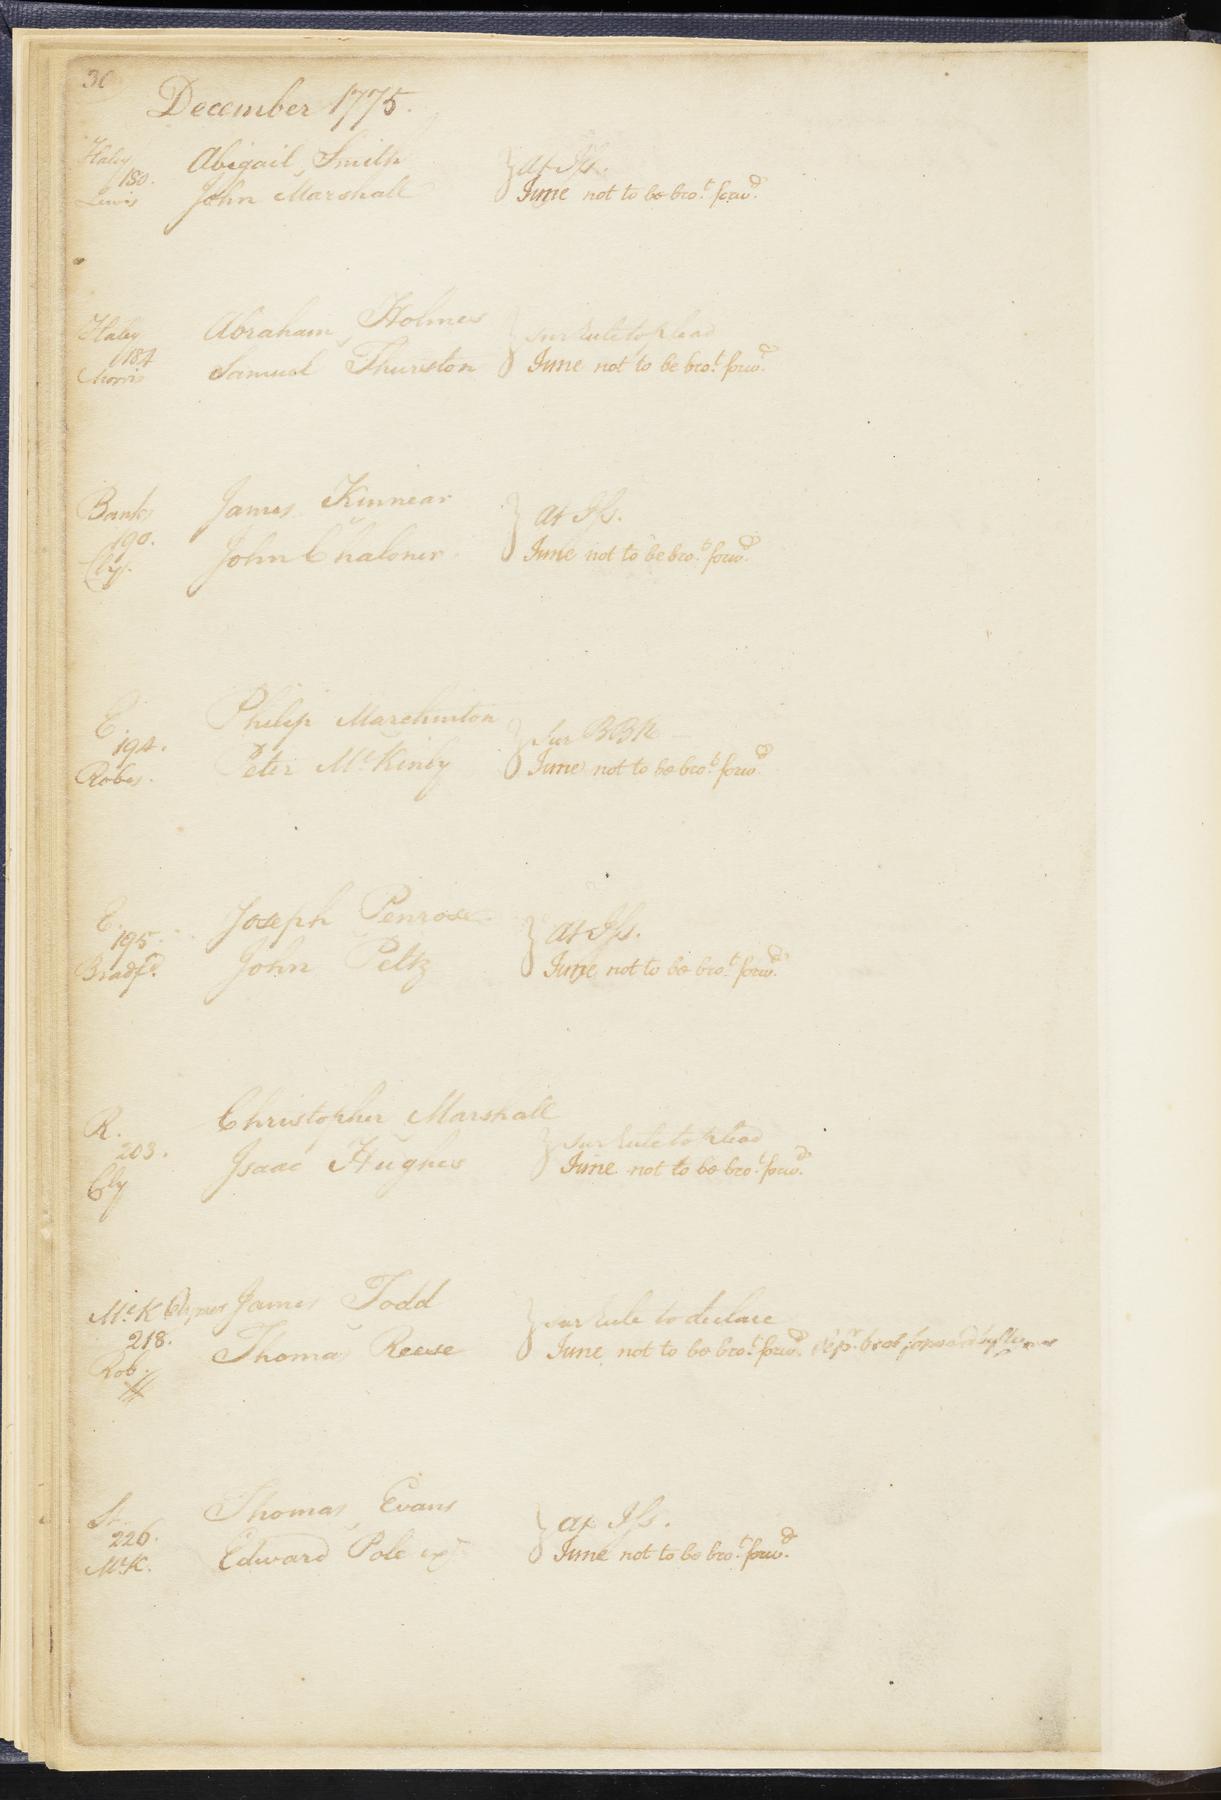 30
December 1775.
Haley Abigail Smith } at Iss.
180.
Lewis John Marshall June not to be bro.t forw.d
Haley Abraham Holmes } sur rule to plead
184
Morris Samuel Thurston June not to be bro.t forw.d
Banks James Kinnear } at Iss.
190.
Cly. John Chaloner June not to be bro.t forw.d
E. Philip Marchinton } Sur BBR
194. v
Robes. Peter McKinly June not to be bro.t forw.d
E. Joseph Penrose } at Iss.
195.
Bradf.d John Peltz June not to be bro.t forw.d
R. Christopher Marshall } sur rule to plead
203.
Cly Isaac Hughes June not to be bro.t forw.d
McK Clymer James Todd } sur rule to declare
218.
Rob. Thomas Reese June not to be bro.t forw.d
St. Thomas Evans } at Iss.
226.
McK. Edward Pole June not to be bro.t forw.d